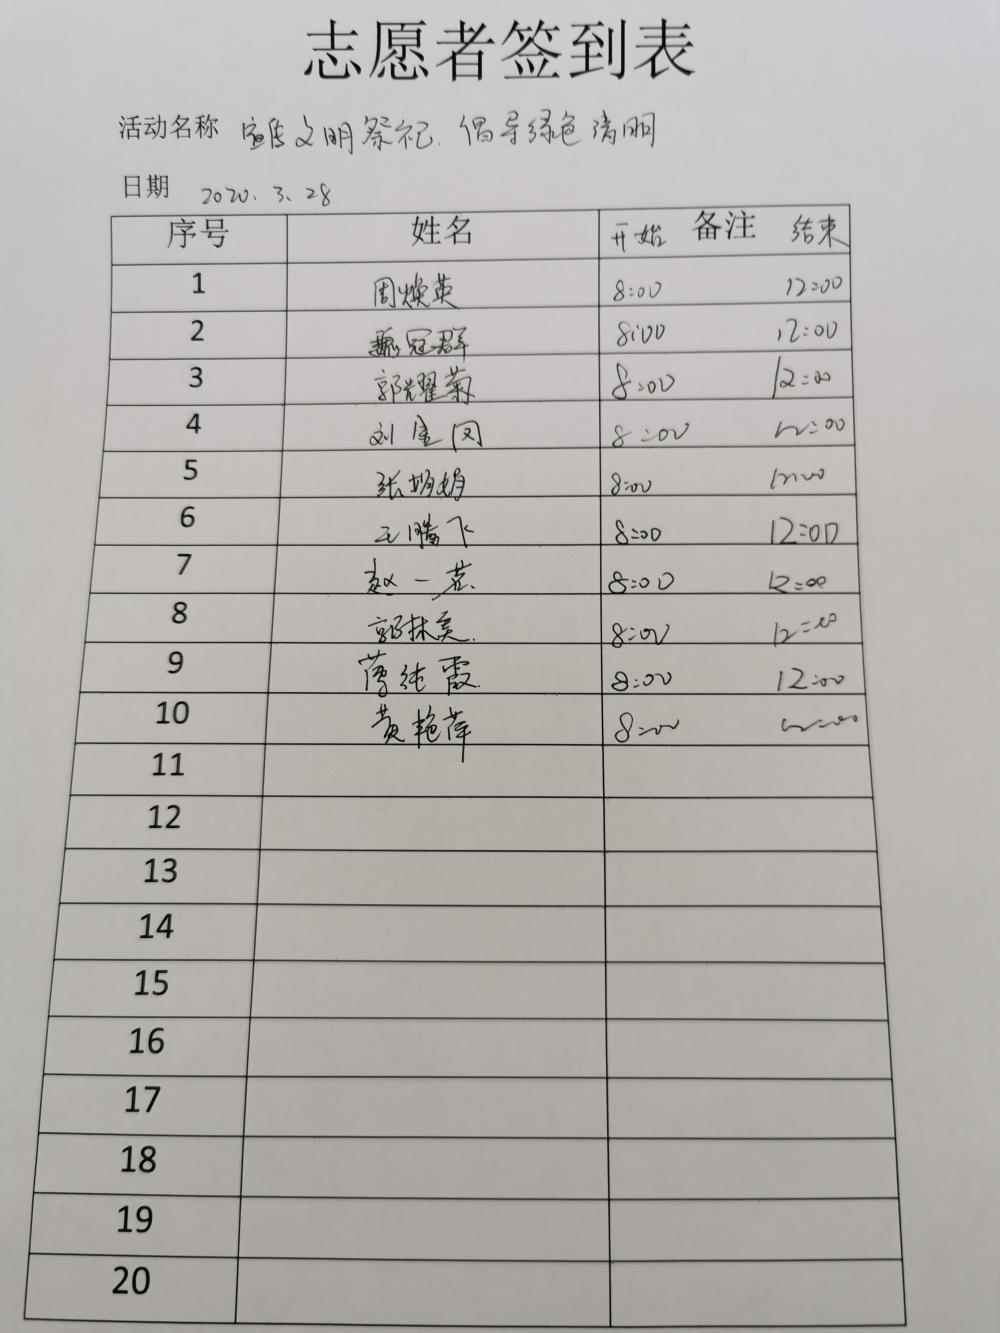 志愿者签到表
活动名称 宣传文明祭祀.倡导绿色清明
日期 2020.3.28
序号 姓名 开始 备注 结束
1 周焕英 8:00 12:00
2 魏冠群 8:00 12:00
3 郭耀菊 8:00 12:00
4 刘金凤 8:00 12:00
5 张娟娟 8:00 12:00
6 王腾飞 8:00 12:00
7 赵一茗 8:00 12:00
8 郭林美. 8:00 12:00
9 薄纯霞. 8:00 12:00
10 黄艳萍 8:00 12:00
11
12
13
14
15
16
17
18
19
20